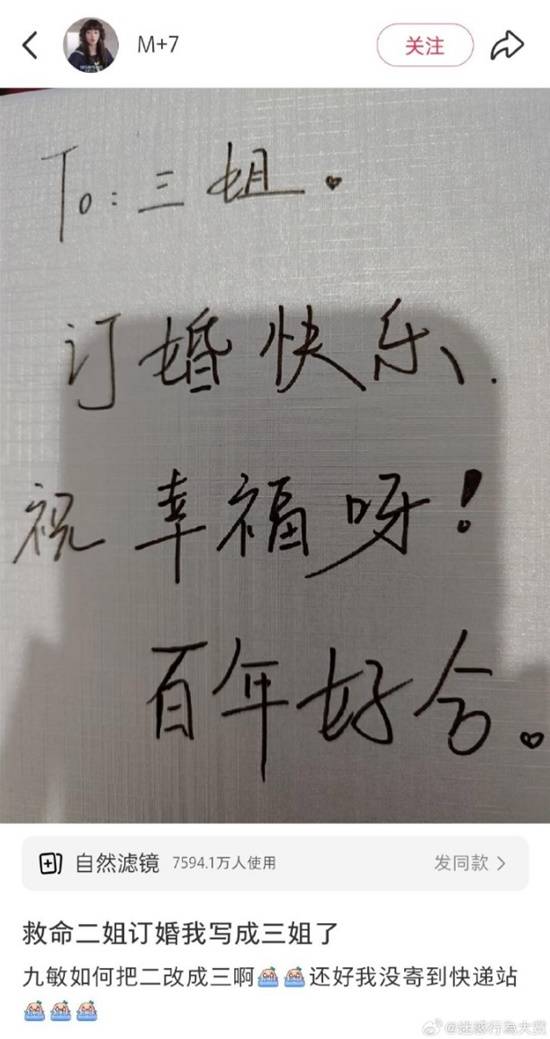 M+7
关注
To:三姐.
订婚快乐、
祝幸福呀!
百年好合。
自然滤镜 7594.1万人使用 发同款
救命二姐订婚我写成三姐了
九敏如何把二改成三啊还好我没寄到快递站
@迷惑行為大赏